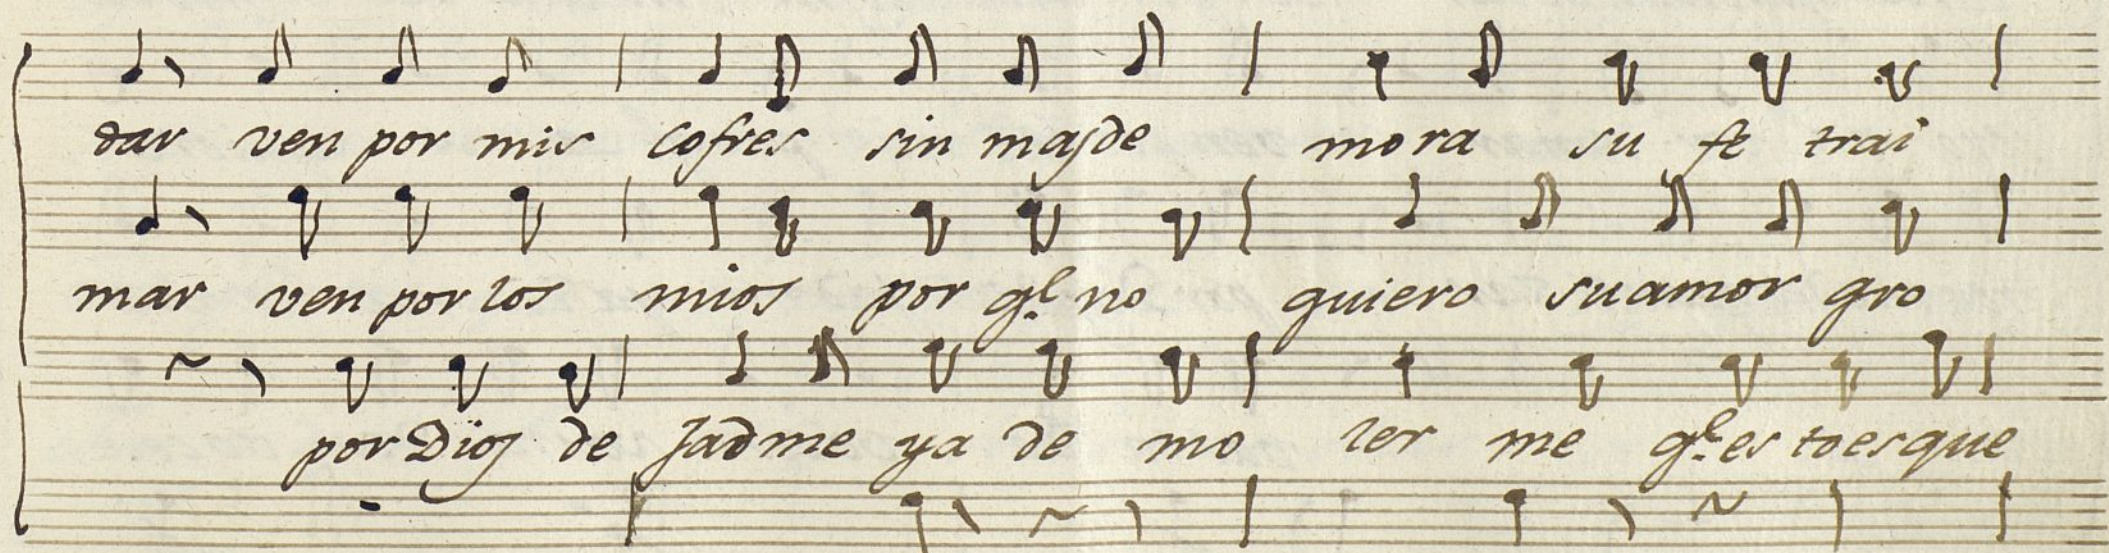 dar ven por mis cofres sin mas de mora su fe trai
mar ven por los mios por ql. no quiero su amor gro
por Dios de Jadme ya de mo ler me ql. es to es que